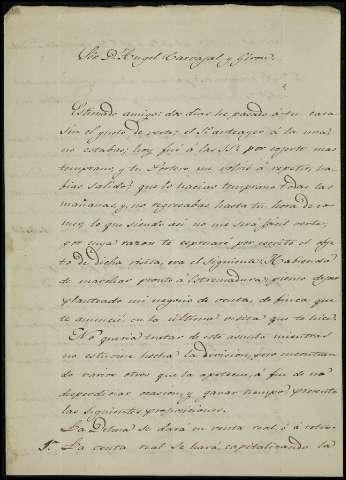 Sor. D. Angel Carvajal y Giron.
Estimado amigo: dos dias he pasado á tu casa
sin el gusto de verte; el 1º anteayer á la una,
no estabas; hoy fuí á las 11 por cojerte mas
temprano, y tu Portero me volvió á repetir, ha-
bias salido; que lo hacias temprano todas las
mañanas, y no regresabas hasta tu hora de co-
mer, lo que siendo asi no me será fácil verte,
por cuya razon te espresaré por escrito el obje-
to de dicha visita, era el siguiente: Habiendo
de marchar pronto á Estremadura, quiero dejar
planteado mi negocio de venta, de finca que
te anuncié en la última visita que te hice.
No queria tratar de este asunto mientras
no estuviese hecha la division, pero
do varios otros que la apetecen, á fin de no
desperdiciar ocasion, y ganar tiempo presento
las siguientes proposiciones.
La Dehesa se dará en venta real, ó á retro.
1ª La venta real se hará, capitalizando la